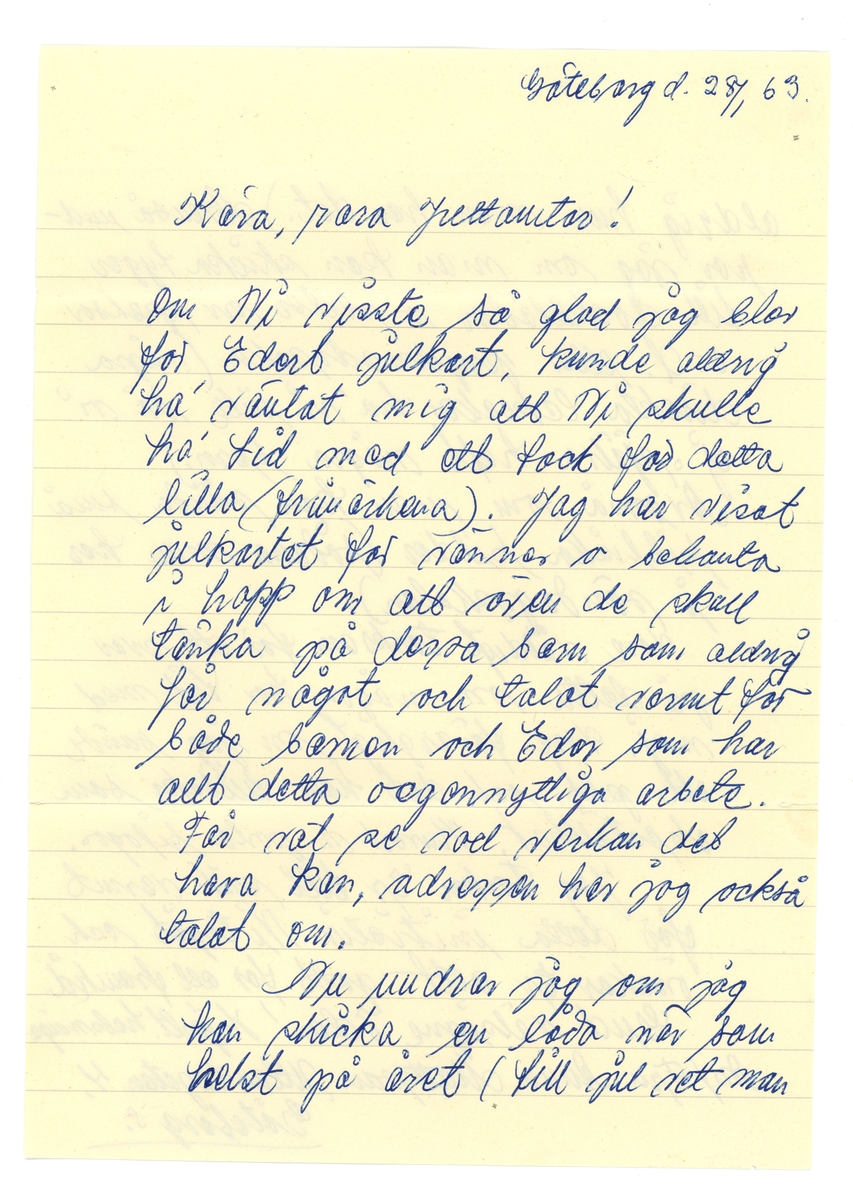 Göteborg d. 28/1 63.
Kära, rara Jultomtar!
Om Ni visste så glad jag blev
för Edert julkort, kunde aldrig
ha' väntat mig att Ni skulle
ha' tid med ett tack för detta
lilla (frimärkena). Jag har visat
julkortet för vänner o bekanta
i hopp om att även de skall
tänka på dessa barn som aldrig
får något och talat varmt för
både barnen och Eder som har
allt detta oegennyttiga arbete.
Får väl se vad verkan det
hava kan, adressen har jag också
talat om.
Nu undrar jag om jag
kan skicka en låda när som
helst på året (till jul vet man